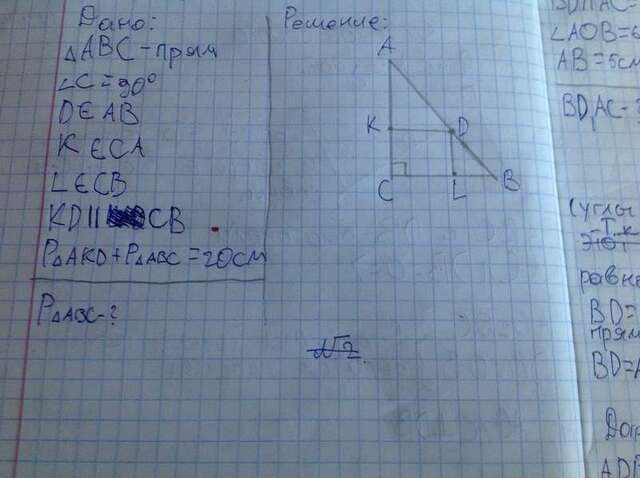 Дано:
△ABC - прям
∠C = 90°
D ∈ AB
K ∈ CA
L ∈ CB
KD || CB
P△AKD + P△ABC = 20см
P△ABC - ?
Решение:
A
K
D
C
L
B
√2
BD||AC -
∠AOB = 6
AB = 5см
BD, AC -
(углы
-Т.к
этот
равне
BD =
прям
BD = A
Дока
ADB